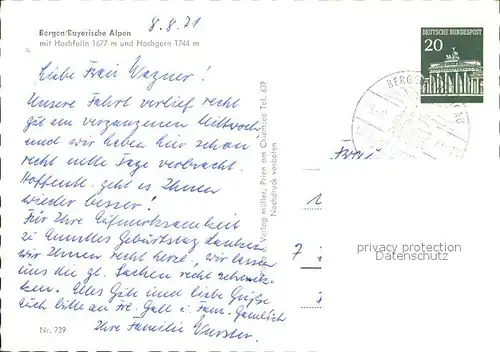 Bergen/Bayerische Alpen
mit Hochfelln 1677 m und Hochgern 1744 m
8.8.71
Liebe Frau Wagner!
Unsere Fahrt verlief recht
gut am vergangenen Mittwoch
und wir haben hier schon
recht nette Tage verbracht.
Hoffentl. geht es Ihnen
wieder besser!
Für Ihre Aufmerksamkeit
zu Geburtstag danken
wir Ihnen recht herzl., wir lassen
uns die gt. Sachen recht schmek-
ken. Alles Gute und liebe Grüße
auch bitte an Frl. u. Fam.
Ihre Familie
Nr. 739
Verlag müller, Prien am Chiemsee Tel. 639
Nachdruck verboten
DEUTSCHE BUNDESPOST
20
BERGEN
Frau
1
7
privacy protection
Datenschutz